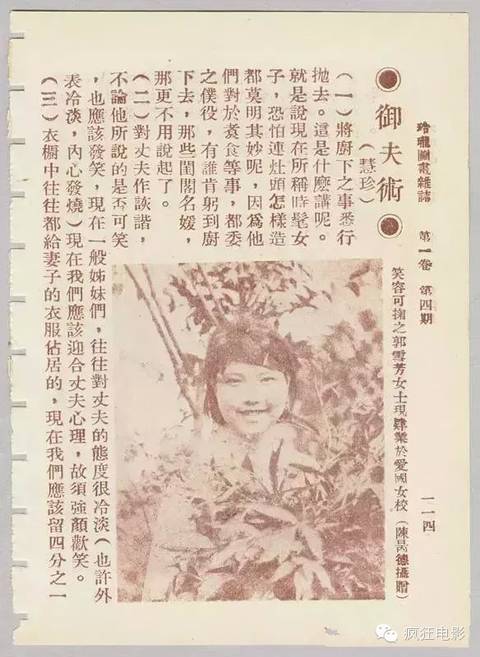 玲瓏圖畫雜誌 第一卷 第四期 一一四
笑容可掬之郭雪芳女士現肄業於愛國女校（陳德攝贈）
●御夫術●
（慧珍）
（一）將廚下之事悉行
拋去。這是什麼講呢。
就是說現在所稱時髦女
子，恐怕連灶頭怎樣造
都莫明其妙呢，因爲他
們對於煑食等事，都委
之僕役，有誰肯躬到廚
下去，那些閨閣名媛，
那更不用說起了。
（二）對丈夫作詼諧，
不論他所說的是否可笑
，也應該發笑，現在一般姊妹們，往往對丈夫的態度很冷淡（也許外
表冷淡，內心發燒）現在我們應該迎合丈夫心理，故須強顏歡笑。
（三）衣橱中往往都給妻子的衣服佔居的，現在我們應該留四分之一
疯狂电影